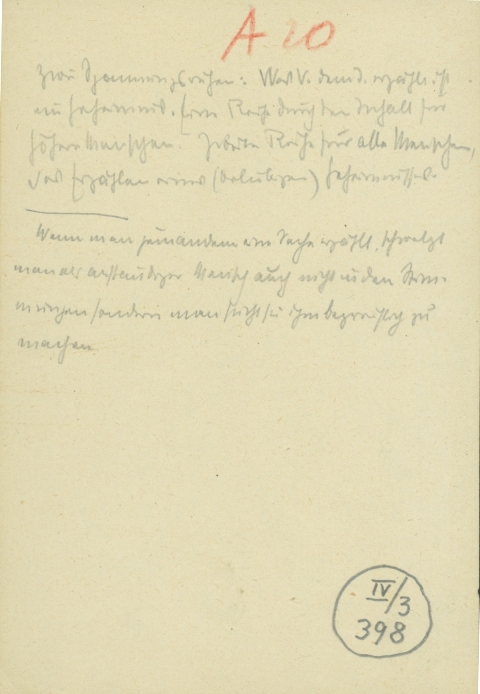 A 20
Zwei Spannungsreihen: Was V. dem D. erzählt, ist
ein Geheimnis. Eine Reihe durch den Inhalt für
höhere Menschen. Zweite Reihe für alle Menschen,
das Erzählen eines (beliebigen) Geheimnisses.
Wenn man jemandem eine Sache erzählt, schwelgt
man als anständiger Mensch auch nicht in den Stim-
mungen sondern man sucht sie ihm begreiflich zu
machen.
IV/3
398